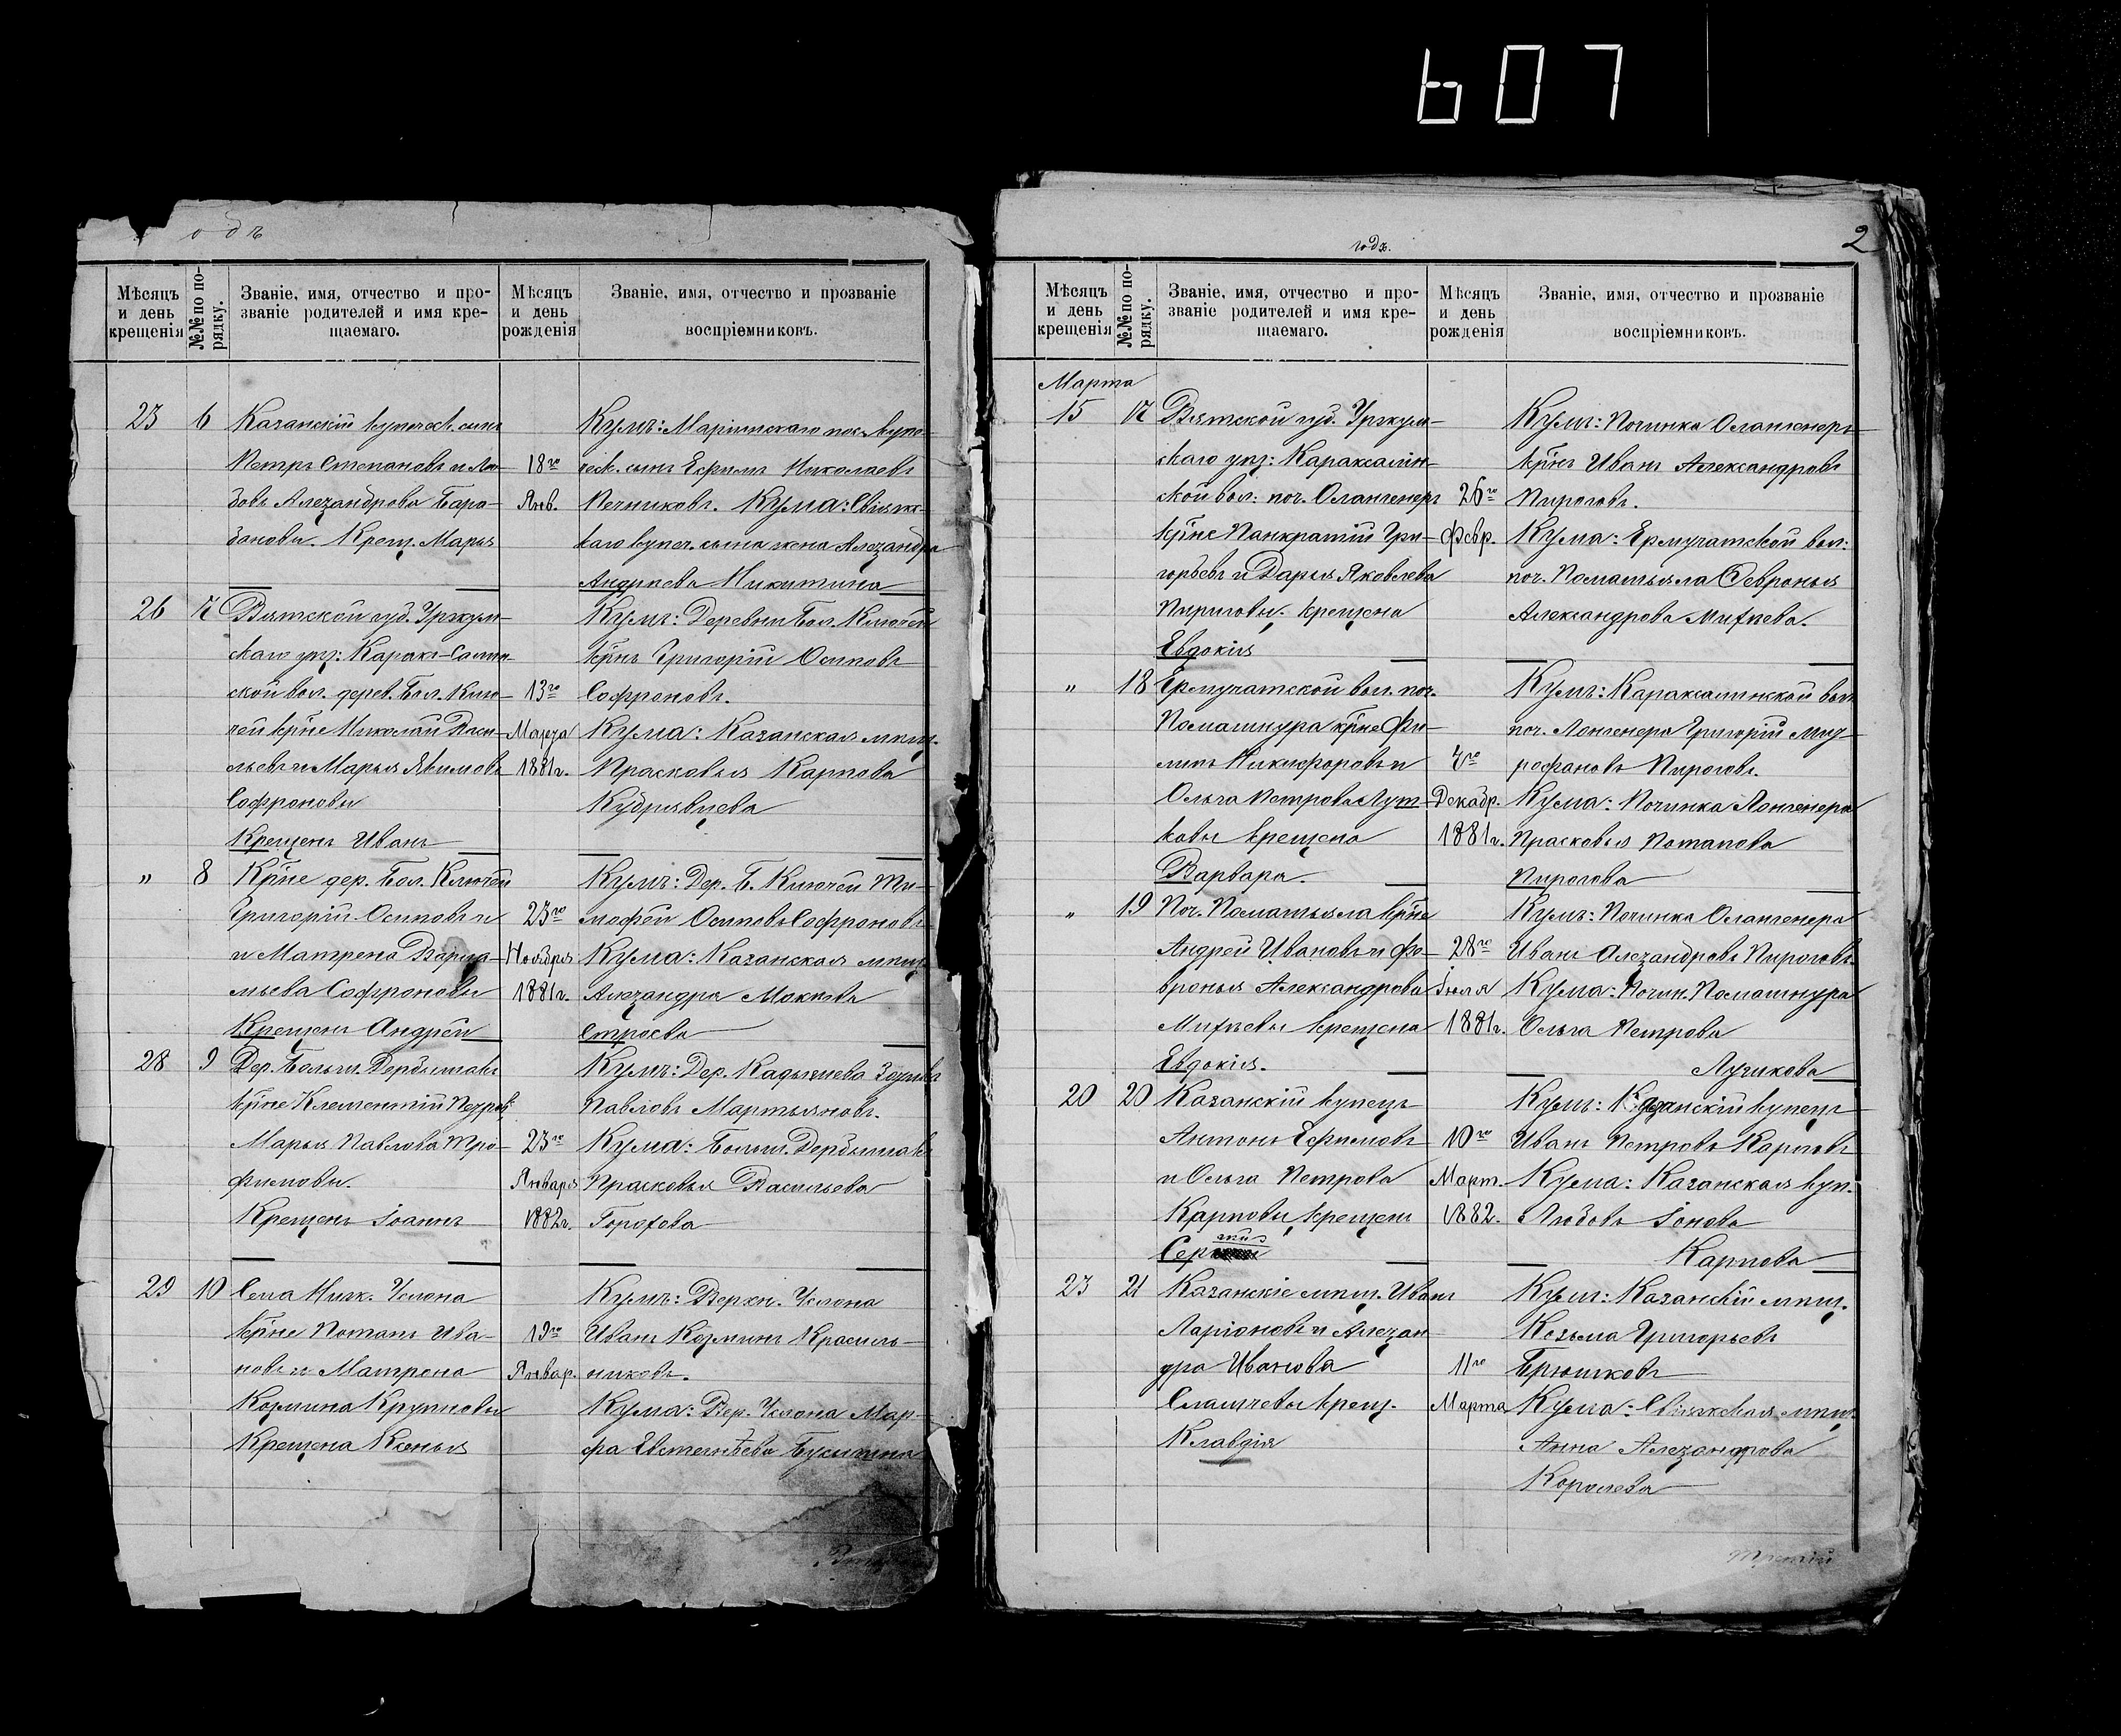 607
одъ
Мѣсяцъ и день крещенія
№№ по порядку.
Званіе, имя, отчество и прозваніе родителей и имя крещаемаго.
Мѣсяцъ и день рожденія
Званіе, имя, отчество и прозваніе воспріемниковъ.
23 6 Казанскій купеческ. сынъ
Петръ Степановъ и Лю-
бовь Александрова Бара-
бановы. Крещ. Марья
18го
Янв.
Кумъ: Маріинскаго пос. купе-
ческ. сынъ Ефимъ Николаевъ
Печниковъ. Кума: Свіяж-
каго купеч. сына жена Александра
Андреева Никитина
26 7 Вятской губ. Уржум-
скаго уѣз: Каракс-Салин-
ской вол. дерев. Бол. Клю-
чей кр̃не Николай Васи-
льевъ и Марья Якимовы
Софроновы
Крещенъ Иванъ
13го
Марта
1881г.
Кумъ: Деревни Бол. Ключей
кр̃нъ Григорій Осиповъ
Софроновъ.
Кума: Казанская мѣщ.
Прасковья Карпова
Кудрявцева
" 8 Кр̃не дер. Бол. Ключей
Григорій Осиповъ и
и Матрена Варла-
мьева Софроновы
Крещенъ Андрей
23го
Ноября
1881г.
Кумъ: Дер. Б. Ключей Ти-
мофей Осиповъ Софроновъ
Кума: Казанская мѣщ.
Александра Мокѣева
Строева
28 9 Дер. Больш. Дербышакъ
кр̃не Клементій Петровъ
Марья Павлова Тро-
фимовы.
Крещенъ Іоаннъ
23го
Января
1882г.
Кумъ: Дер. Кадышева
Павловъ Мартьяновъ.
Кума: Больш. Дербышакъ
Прасковья Васильева
Горохова
29 10 Села Ниж. Услона
кр̃не Потапъ Ива-
новъ и Матрена
Козмина Крупновы
Крещена Ксенья
19го
Январ.
Кумъ: Верхн. Услона
Иванъ Козминъ Красиль-
никовъ.
Кума: Вер. Услона Мар-
фа Евстигнѣева
годъ.
2
Мѣсяцъ и день крещенія
№№ по порядку.
Званіе, имя, отчество и прозваніе родителей и имя крещаемаго.
Мѣсяцъ и день рожденія
Званіе, имя, отчество и прозваніе воспріемниковъ.
Марта
15 17 Вятской губ. Уржум-
скаго уѣз: Караксалин-
ской вол: поч. Олангенеръ
кр̃не Панкратій Гри-
горьевъ и Дарья Яковлева
Пироговы. крещена
Евдокія
26го
Февр.
Кумъ: Починка Олангенеръ
кр̃нъ Иванъ Александровъ
Пироговъ.
Кума: Ермучатской вол:
поч. Помашьяла Февронья
Александрова Михѣева.
" 18 Ермучатской вол. поч.
Помашнура кр̃не Фи-
липъ Никифоровъ и
Ольга Петрова Луч-
ковы крещена
Варвара.
4го
Декабр.
1881г.
Кумъ: Караксалинской вол.
поч. Лонгенера Григорій Мит-
рофановъ Пироговъ.
Кума: Починка Лонгенера
Прасковья Потапова
Пирогова
" 19 Поч. Помашьяла кр̃не
Андрей Ивановъ и Фе-
вронья Александрова
Михѣевы крещена
Евдокія.
28го
Іюля
1881г.
Кумъ: Починка Олангенера
Иванъ Александровъ Пироговъ.
Кума: Почин. Помашнура
Ольга Петрова
Лучикова
20 20 Казанскій купецъ
Антонъ Ефимовъ
и Ольга Петрова
Карповы крещенъ
Сергій
10го
Март.
1882.
Кумъ: Казанскій купецъ
Иванъ Петровъ Карповъ
Кума: Казанская куп.
Любовь Іонова
Карпова
23 21 Казанскіе мѣщ. Иванъ
Ларіоновъ и Алексан-
дра Иванова
крещ.
Клавдія
11го
Марта
Кумъ: Казанскій мѣщ.
Козьма Григорьевъ
Брюшковъ
Кума: Свіяжская мѣщ.
Анна Александрова
Королева
третій